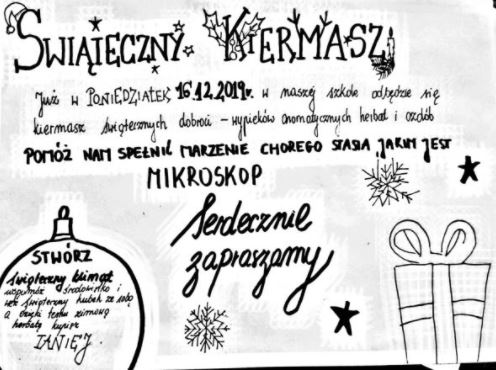 ŚWIĄTECZNY KIERMASZ
Już w PONIEDZIAŁEK 16.12.2019r. w naszej szkole odbędzie się
kiermasz świątecznych dobroci - wypieków aromatycznych herbat i ozdób
POMÓŻ NAM SPEŁNIĆ MARZENIE CHOREGO STASIA JAKIM JEST
MIKROSKOP
Serdecznie
zapraszamy
STWÓRZ
świąteczny klimat
wspomóż środowisko i
weź świąteczny kubek ze sobą
a dzięki temu zimową
herbatę kupisz
TANIEJ